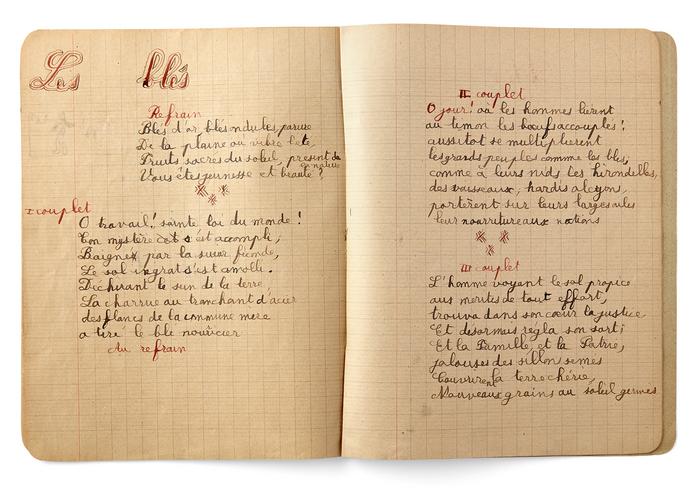 Les blés
Refrain
Blés d'or blés ondules, parure
De la plaine ou vibre l'ete,
Fruits sacres du soleil, present de
nature
Vous êtes jeunesse et beaute!
I couplet
O travail! sainte loi du monde!
Ton mystère est s'est accompli,
Baignez par la sueur feconde,
Le sol ingrat s'est amolli.
Déchirant le sein de la terre,
La charrue au tranchant d'acier
des flancs de la commune mere
a tiré le blé nourricier
Au refrain
II couplet
O jour! où les hommes lierent
au timon les boeufs accouples!
aussitot se multiplierent
les grands peuples comme les bles,
comme à leurs nids les hirondelles,
des vaisseaux, hardis alcyons,
portèrent sur leurs larges ailes
leur nourriture aux nations
III couplet
L'homme voyant le sol propice
aux merites de tout effort,
trouva dans son coeur la justice
Et désormais regla son sort;
Et la Famille, et la Patrie,
jalouses des sillons semes
Couvrirent la terre chérie,
Nouveaux grains au soleil germes